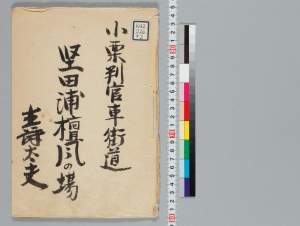 小栗判官車街道
堅田浦檀風の場
太夫